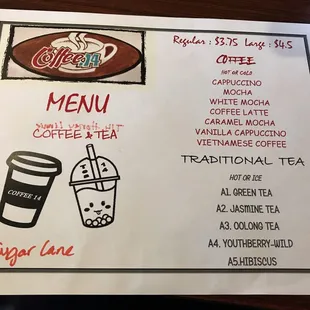 Coffee 14
Regular : $3.75 Large : $4.5
COFFEE
HOT OR COLD
CAPPUCCINO
MOCHA
WHITE MOCHA
COFFEE LATTE
CARAMEL MOCHA
VANILLA CAPPUCCINO
VIETNAMESE COFFEE
MENU
COFFEE & TEA
COFFEE 14
TRADITIONAL TEA
HOT OR ICE
A1. GREEN TEA
A2. JASMINE TEA
A3. OOLONG TEA
A4. YOUTHBERRY-WILD
A5.HIBISCUS
Sugar Lane